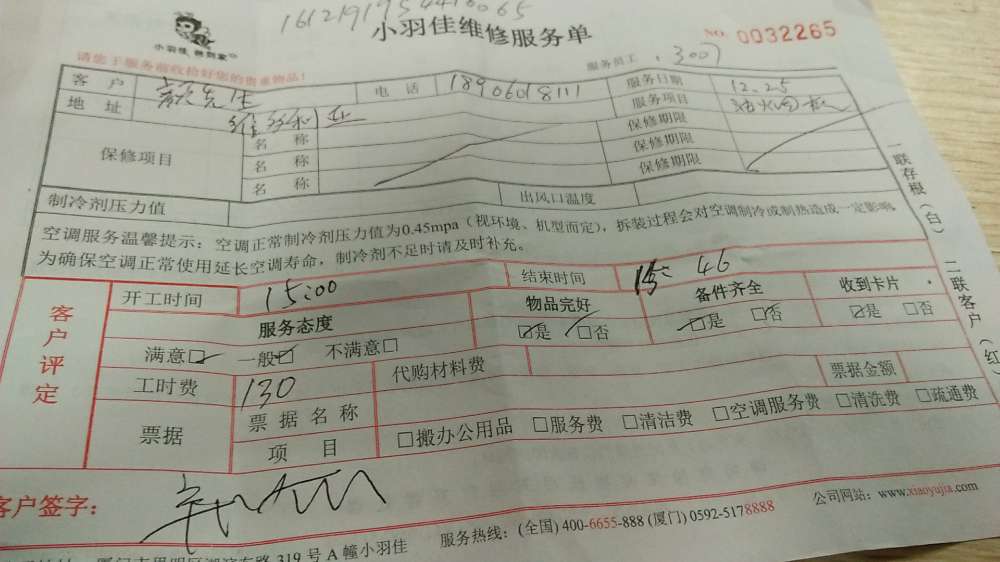 小羽佳维修服务单
NO. 0032265
小羽佳 帮到家
请您于服务前收拾好您的贵重物品!
服务员工: 3007
客户 颜先生 电话 18906018111 服务日期 12.25
地址 服务项目
保修项目 名称 保修期限
名称 保修期限
名称 保修期限
制冷剂压力值 出风口温度
空调服务温馨提示:空调正常制冷剂压力值为0.45mpa(视环境、机型而定),拆装过程会对空调制冷或制热造成一定影响。
为确保空调正常使用延长空调寿命,制冷剂不足时请及时补充。
客户评定
开工时间 15:00 结束时间 15:46
服务态度 物品完好 备件齐全 收到卡片
满意☑ 一般☑ 不满意□ ☑是 ☑否 ☑是 ☑否 ☑是 □否
工时费 130 代购材料费 票据金额
票据 票据名称
项目 □搬办公用品 □服务费 □清洁费 □空调服务费 □清洗费 □疏通费
客户签字:
服务热线:(全国) 400-6655-888 (厦门) 0592-5178888 公司网站:www.xiaoyujia.com
319号A幢小羽佳
一联存根(白) 二联客户(红)